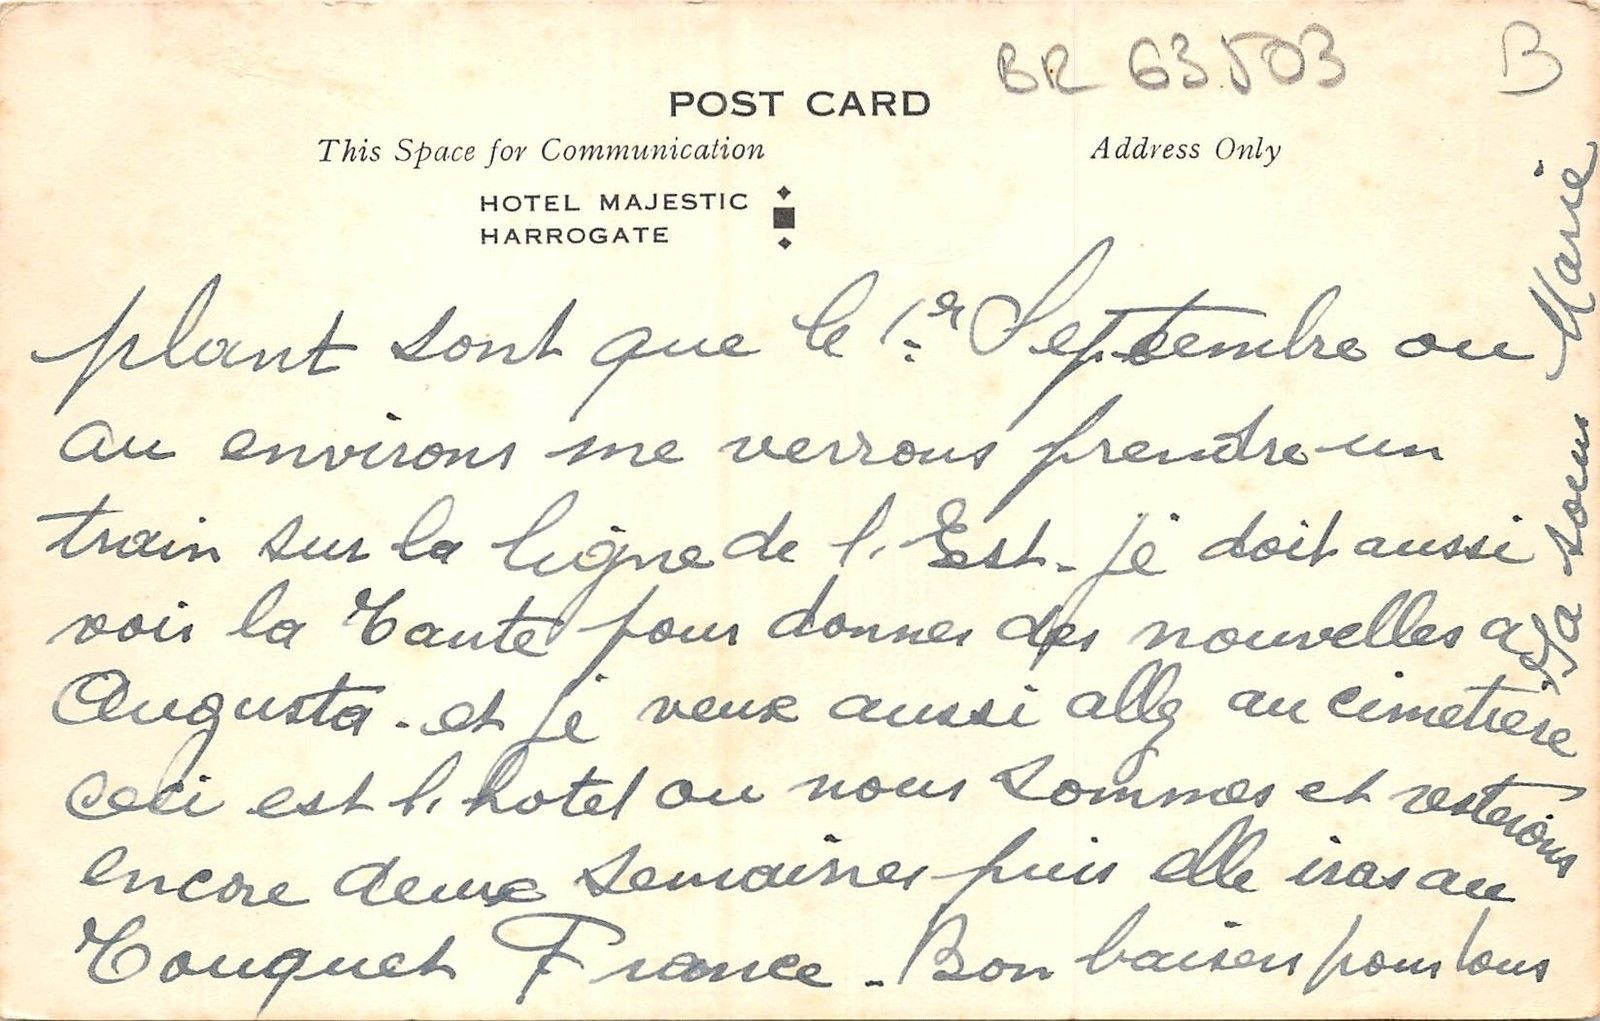 BR 63503 B
POST CARD
This Space for Communication
Address Only
HOTEL MAJESTIC
HARROGATE
plant sont que le 1er Septembre ou
au environs me verrons prendre un
train sur la ligne de l'Est - je doit aussi
voir la Tante pour donner des nouvelles a
Augusta - et je veux aussi allez au cimetiere
ceci est l'hotel ou nous sommes et resterons
encore deux semaines puis elle iras au
Touquet France - Bon baisers pour tous
Ta soeur Marie